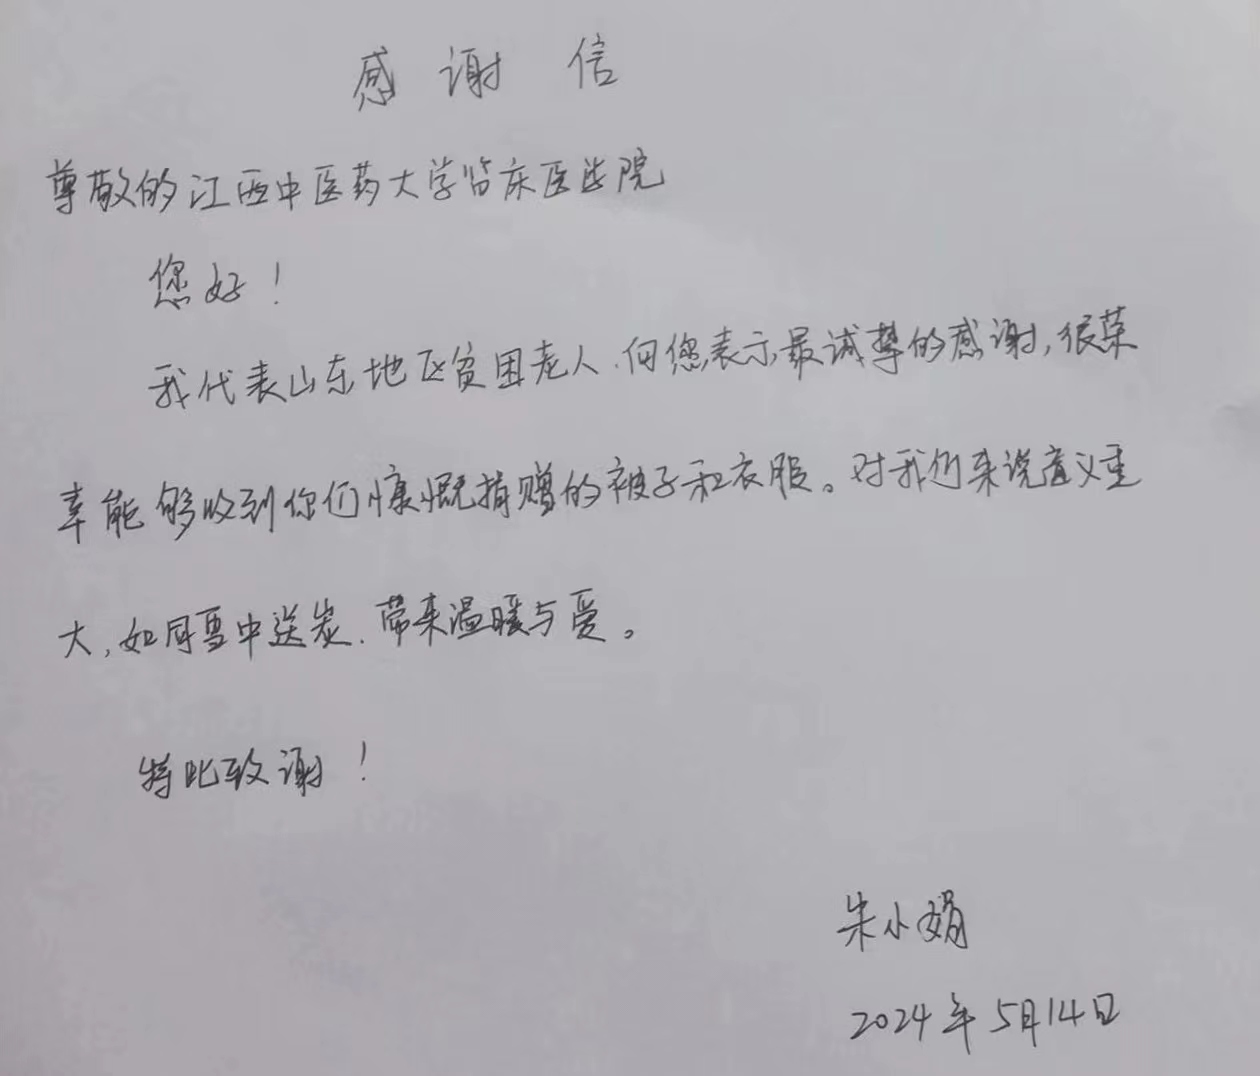 感谢信
尊敬的江西中医药大学临床医学院
您好！
我代表山东地区贫困老人，向您表示最诚挚的感谢，很荣
幸能够收到你们慷慨捐赠的被子和衣服。对我们来说意义重
大，如同雪中送炭，带来温暖与爱。
特此致谢！
朱小娟
2024年5月14日